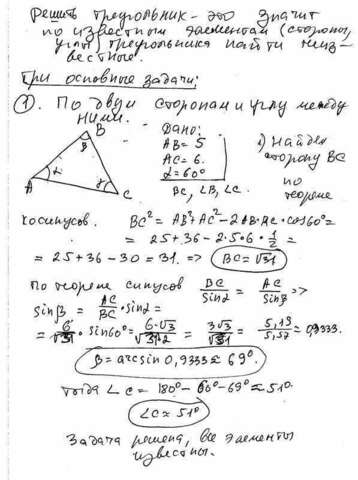 Решить треугольник - это значит
по известным элементам (стороны,
углы) треугольника найти неиз-
вестные.
Три основные задачи:
① По двум сторонам и углу между
ними.
B
β
A
α
γ
C
Дано:
AB = 5
AC = 6.
α = 60°
BC, ∠B, ∠C.
1) Найдём
сторону BC
по
теореме
косинусов. BC² = AB² + AC² - 2AB·AC·cos60° =
= 25 + 36 - 2·5·6·1/2 =
= 25 + 36 - 30 = 31. => BC = √31
По теореме синусов BC/sinα = AC/sinβ =>
sinβ = AC/BC · sinα =
= 6/√31 · sin60° = 6·√3/√31·2 = 3√3/√31 = 5,19/5,57 = 0,9333.
β = arcsin 0,9333 ≈ 69°.
Тогда ∠C = 180° - 60° - 69° ≈ 51°
∠C ≈ 51°
Задача решена, все элементы
известны.